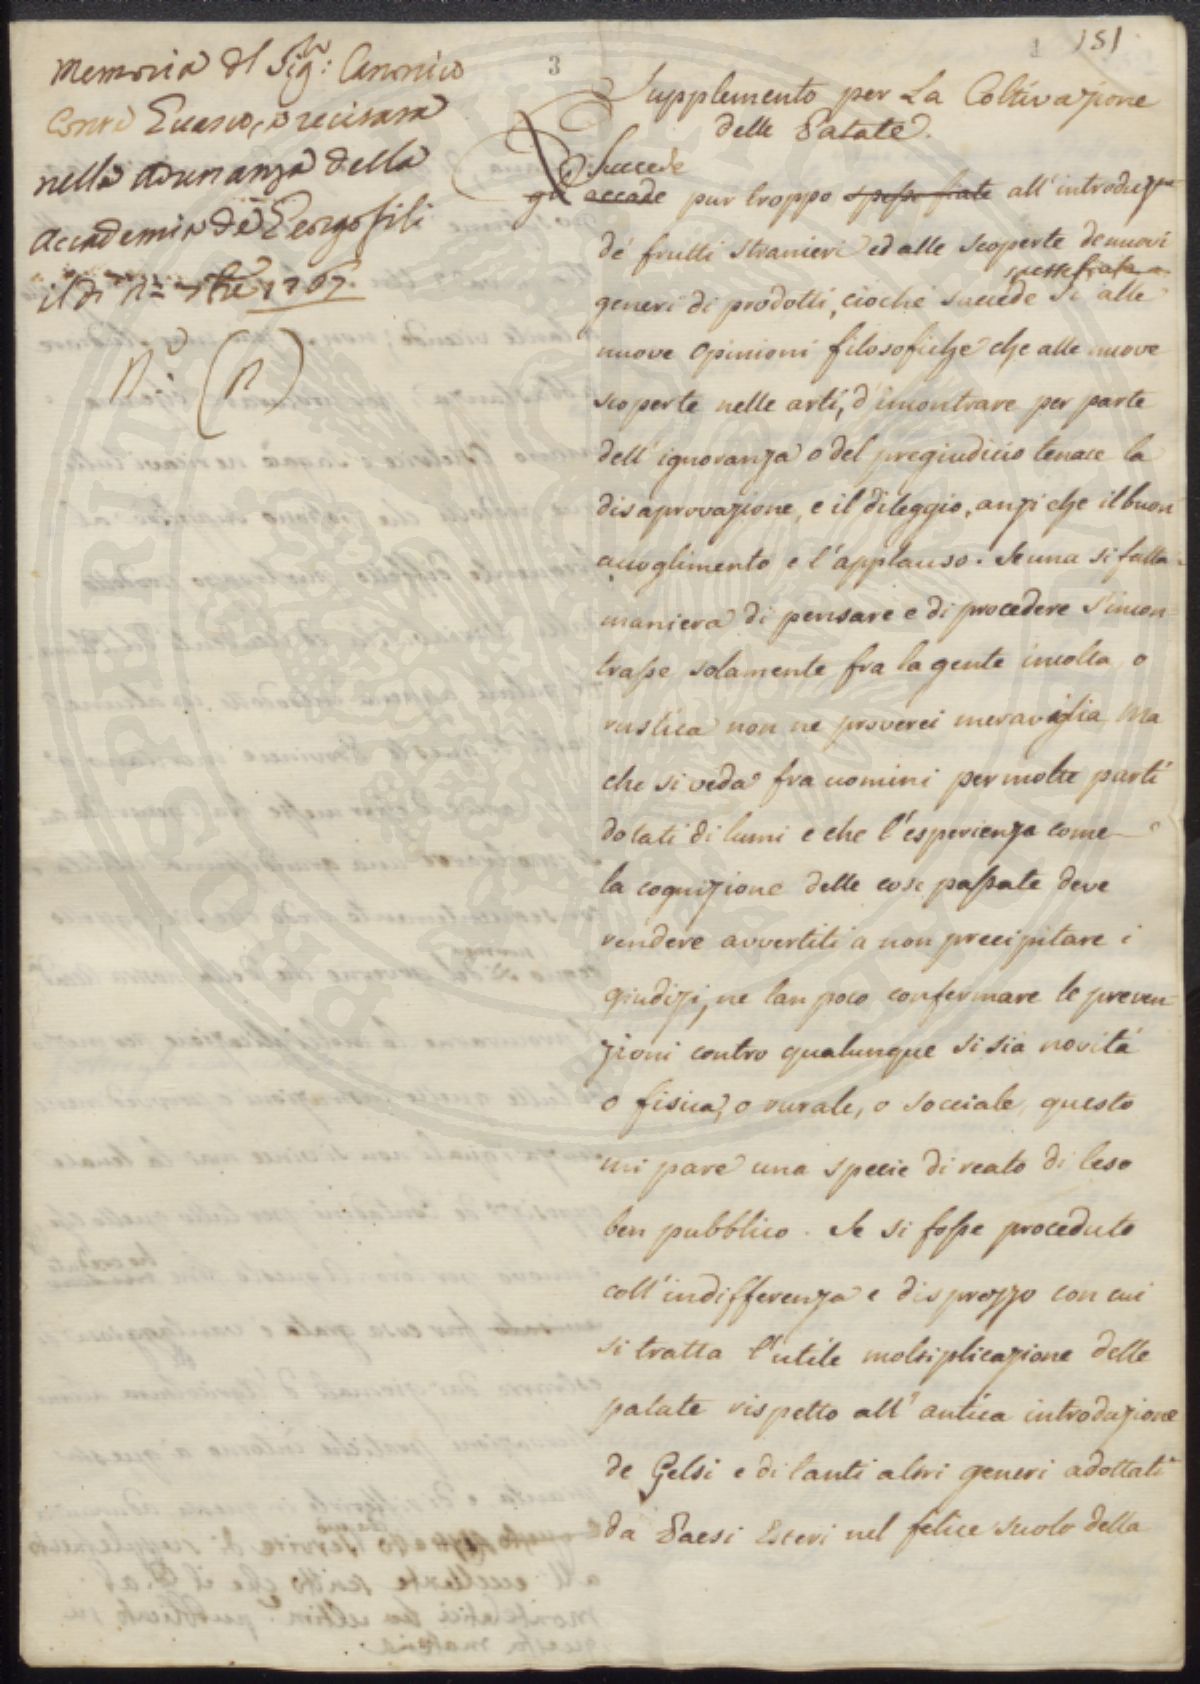 151
3
1
Memoria del Sig:r Canonico
recitata
nella adunanza della
Accademia de Georgofili
il dì 1767.
N.o (11)
Supplemento per La Coltivazione
delle Patate.
Succede
gli accade pur troppo spesse fiate all'introduz.ne
de frutti stranieri ed alle scoperte de nuovi
spesse fiate
generi di prodotti, ciochè succede Si alle
nuove opinioni filosofiche che alle nuove
scoperte nelle arti, d'incontrare per parte
dell'ignoranza o del pregiudicio tenace la
disaprovazione, e il dileggio, anzi che il buon
accoglimento e l'applauso. Se una si fatta
maniera di pensare e di procedere s'incon-
trasse solamente fra la gente incolta, o
rustica non ne proverei meraviglia. Ma
che si veda fra uomini per molte parti
dotati di lumi e che l'esperienza come
la cognizione delle cose passate deve
rendere avvertiti a non precipitare i
giudizi, ne tan poco confermare le preven-
zioni contro qualunque si sia novità
o fisica, o rurale, o socciale, questo
mi pare una specie di reato di leso
ben pubblico. Se si fosse proceduto
coll'indifferenza e disprezzo con cui
si tratta l'utile moltiplicazione delle
patate rispetto all'antica introduzione
de Gelsi e di tanti altri generi adottati
da Paesi Esteri nel felice suolo della